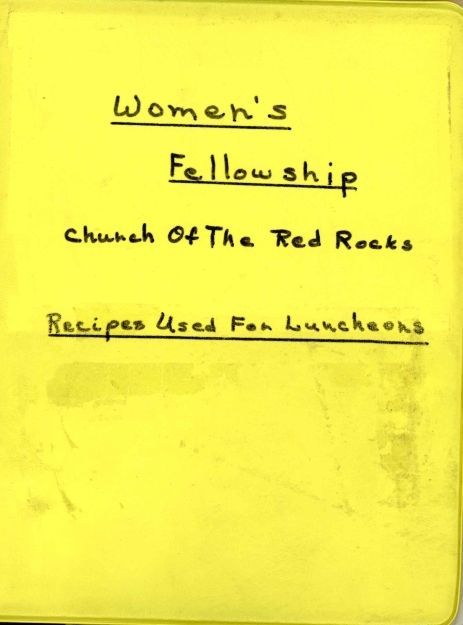 Women's
Fellowship
Church Of The Red Rocks
Recipes Used For Luncheons